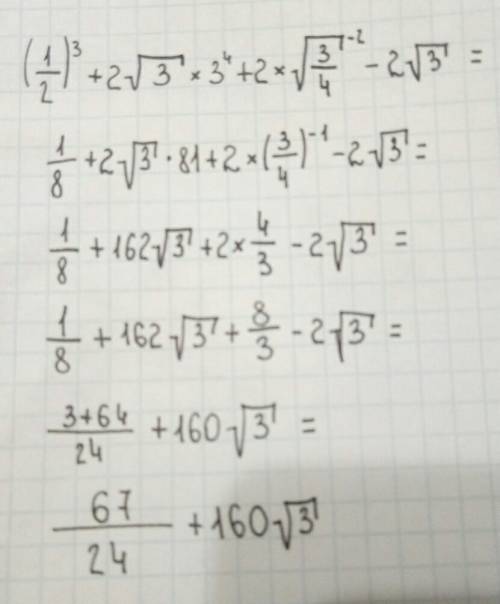 (1/2)³ + 2√3 × 3⁴ + 2 × √(3/4)⁻² − 2√3 =
1/8 + 2√3 · 81 + 2 × (3/4)⁻¹ − 2√3 =
1/8 + 162√3 + 2 × 4/3 − 2√3 =
1/8 + 162√3 + 8/3 − 2√3 =
3+64/24 + 160√3 =
67/24 + 160√3